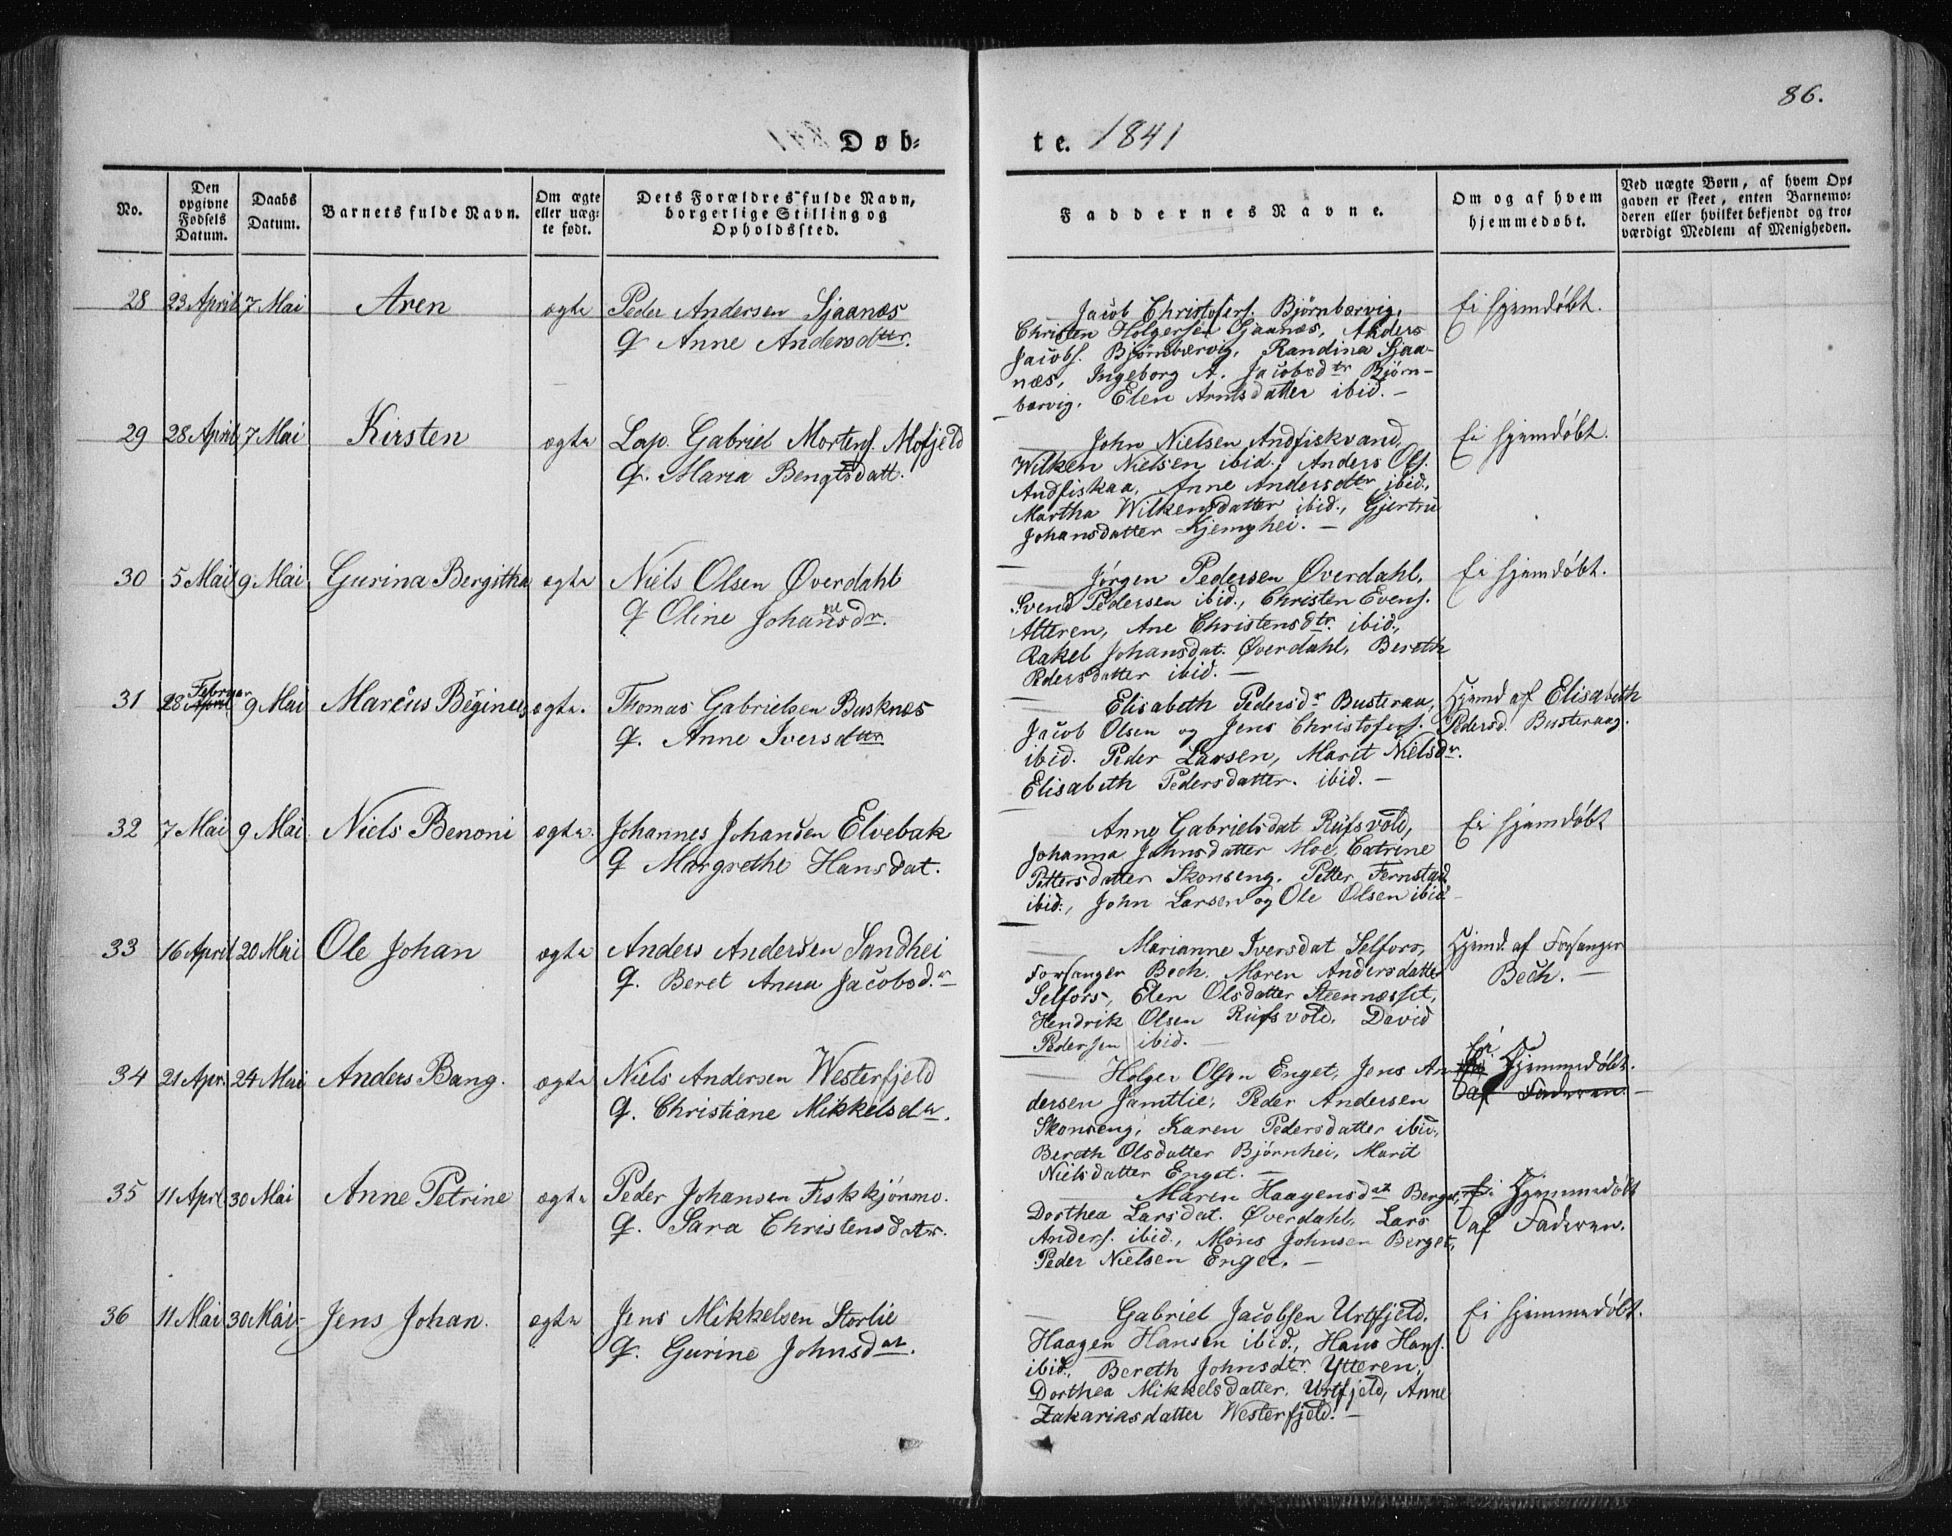 86.
Døb-
te. 1841
No.
Den opgivne Fødsels Datum.
Daabs Datum.
Barnets fulde Navn.
Om ægte eller uæg- te født.
Dets Forældres fulde Navn, borgerlige Stilling og Opholdssted.
Faddernes Navne.
Om og af hvem hjemmedøbt.
Ved uægte Børn, af hvem Op- gaven er skeet, enten Barnemo- deren eller hvilket bekjendt og tro- værdigt Medlem af Menigheden.
28 23 April 7 Mai Aren ægte Peder Andersen Sjaanæs
& Anne Andersdttr.
Jacob Christofers. Bjørnbærvig,
Christen Holgersen Sjaanæs, Anders
Jacobs. Bjørnbærvig, Randina Sjaa-
næs, Ingeborg A. Jacobsdtr Bjørn-
bærvig, Elen Arntsdatter ibid. –
Ei hjemdøbt.
29 28 April 7 Mai Kirsten ægte Lap. Gabriel Mortens. Mofjeld
& Maria Bengtsdatt.
John Nielsen Andfiskvand,
Wilken Nielsen ibid., Anders Ols.
Andfiskaa, Anne Andersdtr ibid.,
Martha Wilkensdatter ibid., Gjertru
Johansdatter Kjemghei. –
Ei hjemdøbt.
30 5 Mai 9 Mai Gurina Bergitha ægte Niels Olsen Øverdahl
& Oline Johansdr.
Jørgen Pedersen Øverdahl,
Svend Pedersen ibid., Christen Evens.
Alteren, Ane Christensdtr. ibid.,
Rakel Johansdat. Øverdahl, Bereth
Pedersdatter ibid. –
Ei hjemdøbt.
31 28 Februar 9 Mai Marcus Beginus ægte. Thomas Gabrielsen Busknæs
& Anne Iversdttr
Elisabeth Pedersdr Busteraa,
Jacob Olsen og Jens Christofers.
ibid. Peder Larsen, Marit Nielsdr.
Elisabeth Pedersdatter. ibid. –
Hjemd af Elisabeth
Pedersd. Busteraag.
32 7 Mai 9 Mai Niels Benoni ægte Johannes Johansen Elvebak
& Margrethe Hansdat.
Anne Gabrielsdat Rufsvold,
Johanna Johnsdatter Moe, Catrine
Pettersdatter Skonseng, Petter Fernstad
ibid., John Larsen og Ole Olsen ibid
Ei hjemdøbt
33 16 April 20 Mai Ole Johan ægte Anders Andersen Sandhei
& Beret Anna Jacobsd.r
Marianne Iversdat Selfors,
Forsanger Bech. Maren Andersdatter
Selfors, Elen Olsdatter Steennæsset,
Hendrik Olsen Rufsvold, David
Pedersen ibid. –
Hjemd. af Forsanger
Bech. –
34 21 Apr. 24 Mai Anders Bang. ægte Niels Andersen Westerfjeld
& Christiane Mikkelsdr.
Holger Olsen Enget, Jens An-
dersen Jamtlie, Peder Andersen
Skonseng, Karen Pedersdatter ibid,
Bereth Olsdatter Bjørnhei, Marit
Nielsdatter Enget. –
Ei Hjemmedøbt.
af Faderen.
35 11 Aprl 30 Mai Anne Petrine ægte Peder Johansen Fiskkjønmo.
& Sara Christensdatr.
Maren Haagensdat Berget,
Dorthea Larsdat. Øverdahl, Lars
Anders. ibid., Mons Johnsen Berget,
Peder Nielsen Enget. –
Hjemmedøbt
af Faderen.
36 11 Mai 30 Mai Jens Johan. ægte Jens Mikkelsen Storlie
& Gurine Johnsdat.
Gabriel Jacobsen Urtfjeld,
Haagen Hansen ibid., Hans Hans.
ibid., Bereth Johnsdtr Ytteren,
Dorthea Mikkelsdatter. Urtfjeld, Anne
Zakariasdatter Westerfjeld. –
Ei hjemmedøbt.